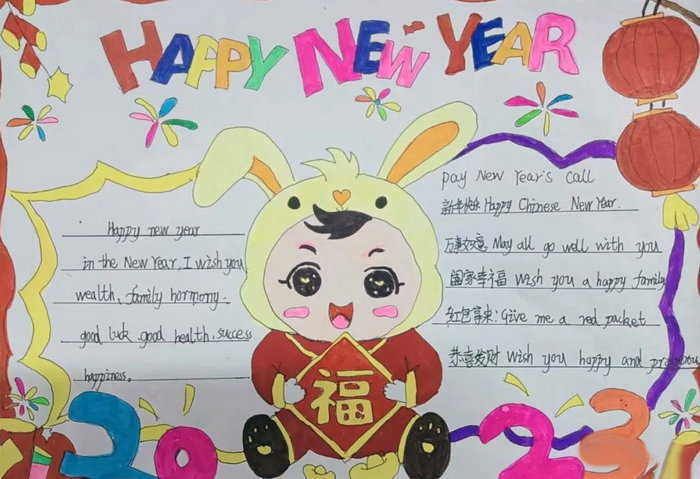 HAPPY NEW YEAR
pay New Year's Call
Happy new year
新年快乐 Happy Chinese New Year.
in the New Year, I wish you
万事如意 May all go well with you
wealth, family hormony.
阖家幸福 wish you a happy family
good luck good health. success
红包拿来: Give me a red packet
happiness.
恭喜发财 wish you happy and prosperous
福
2023